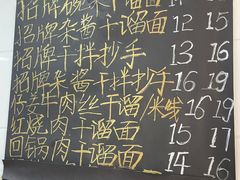 招牌碗杂干溜面 12 14
招牌杂酱干溜面 12
招牌干拌抄手 13 16
招牌杂酱干拌抄手 16 19
仔姜牛肉丝干溜面/米线 16 19
红烧肉干溜面 15 17
回锅肉干溜面 14 16